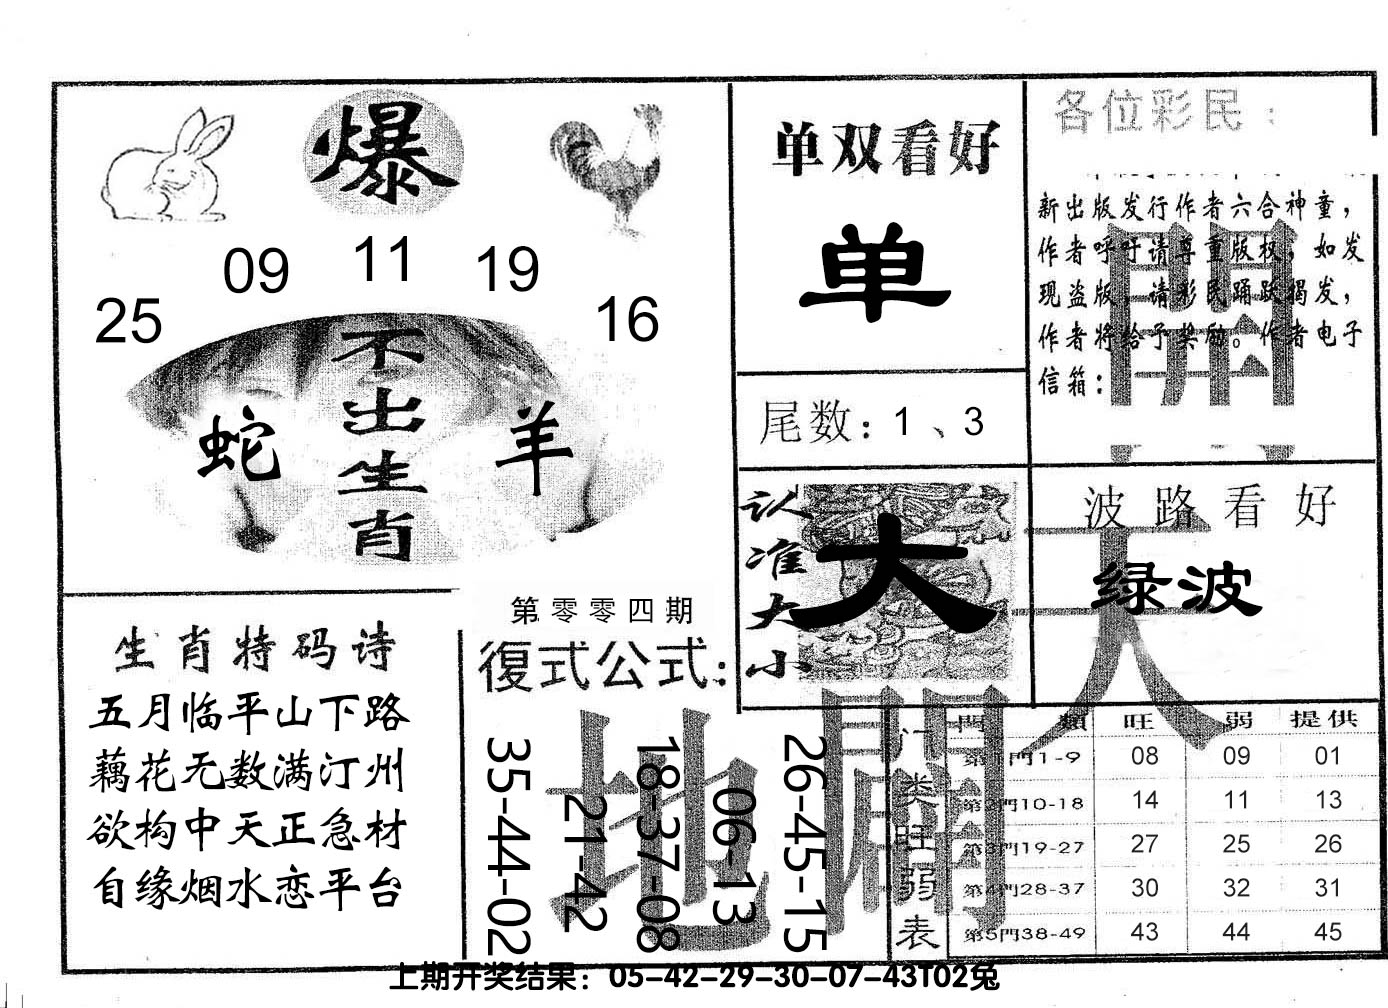 爆
09 11 19
25 16
不出生肖
蛇 羊
单双看好
单
尾数：1、3
各位彩民：
新出版发行作者六合神童，
作者呼吁请尊重版权，如发
现盗版，请彩民踊跃揭发，
作者将给予奖励。作者电子
信箱：
認准大小
大
波路看好
绿波
生肖特码诗
五月临平山下路
藕花无数满汀州
欲构中天正急材
自缘烟水恋平台
第零零四期
復式公式：
35-44-02
21-42
18-37-08
06-13
26-45-15
天
地
開
門类旺弱表
門類 旺 弱 提供
第1門1-9 08 09 01
第2門10-18 14 11 13
第3門19-27 27 25 26
第4門28-37 30 32 31
第5門38-49 43 44 45
上期开奖结果：05-42-29-30-07-43T02兔